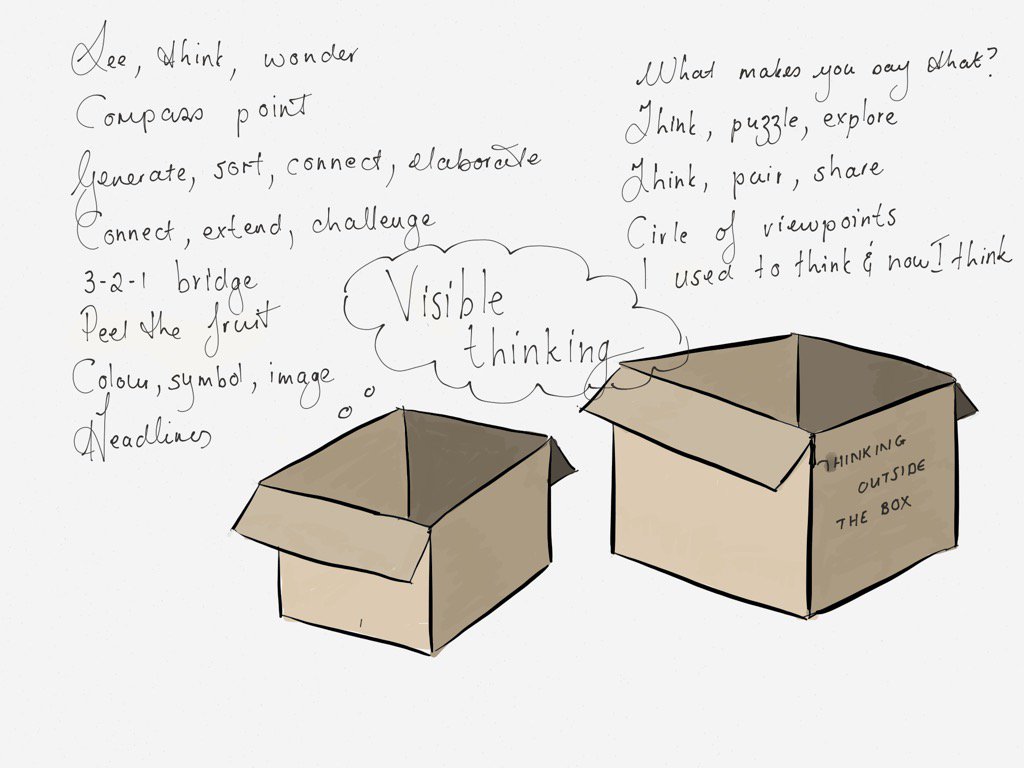 See, think, wonder
Compass point
Generate, sort, connect, elaborate
Connect, extend, challenge
3-2-1 bridge
Peel the fruit
Colour, symbol, image
Headlines
What makes you say that?
Think, puzzle, explore
Think, pair, share
Cirle of viewpoints
I used to think & now I think
Visible
thinking
THINKING
OUTSIDE
THE BOX